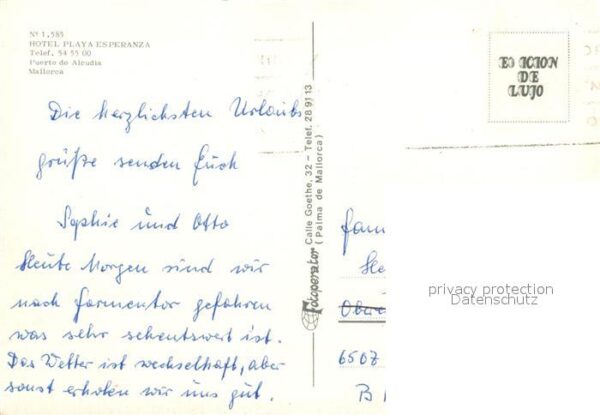 Nº 1,585
HOTEL PLAYA ESPERANZA
Telef. 54 55 00
Puerto de Alcudia
Mallorca
EDICION
DE
LUJO
Die herzlichsten Urlaubs
grüße senden Euch
Sophie und Otto
Heute Morgen sind wir
nach Formentor gefahren
was sehr sehenswert ist.
Das Wetter ist wechselhaft, aber
sonst erholen wir uns gut.
Fotoperator Calle Goethe, 32 - Telef. 28 91 13
(Palma de Mallorca)
Fam
He
6507
B
privacy protection
Datenschutz